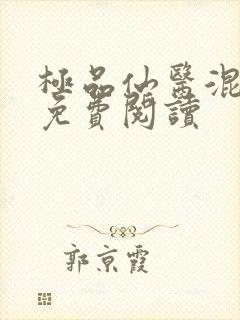 極品仙醫混
免費閱讀
郭京霞